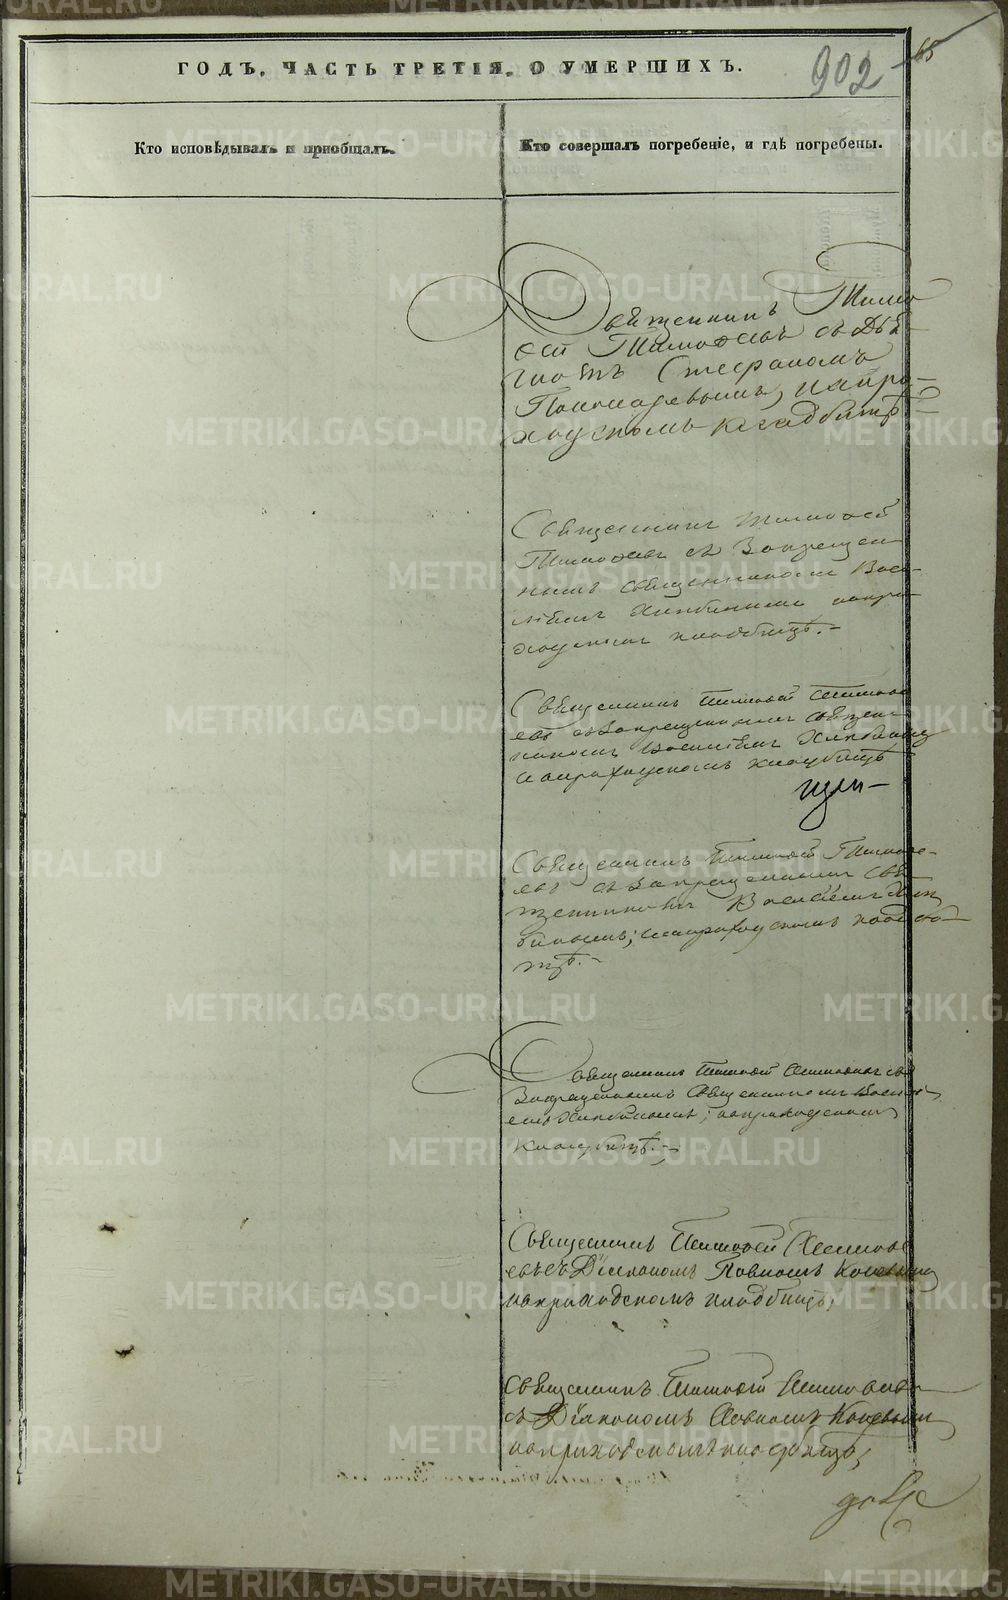 902
65
ГОДЪ, ЧАСТЬ ТРЕТІЯ, О УМЕРШИХЪ.
Кто исповѣдывалъ и пріобщалъ.
Кто совершалъ погребеніе, и гдѣ погребены.
Священникъ Тимо
фей Тимофеевъ съ Дья
Стефаномъ
Пономаревымъ, на при
ходскомъ кладбищѣ
Священникъ Тимофей
Тимофеевъ съ Запрещен
нымъ священникомъ Васи
ліемъ Хлѣбинымъ на при
ходскомъ кладбищѣ.
Священникъ Тимофей Тимофе
евъ съ Запрещеннымъ священ
никомъ Василіемъ
на приходскомъ кладбищѣ
Священникъ Тимофей Тимофе
евъ съ Запрещеннымъ Свя
щенникомъ Василіемъ Хлѣ
бинымъ, на приходскомъ кладби
щѣ.
Священникъ Тимофей Тимофеевъ съ
Запрещеннымъ Священникомъ Васил
іемъ Хлѣбинымъ, на приходскомъ
кладбищѣ.
Священникъ Тимофей Тимофе
евъ съ Діакономъ Павломъ
на приходскомъ кладбищѣ,
Священникъ Тимофей Тимофеевъ
съ Діакономъ Павломъ
на приходскомъ кладбищѣ,
METRIKI.GASO-URAL.RU